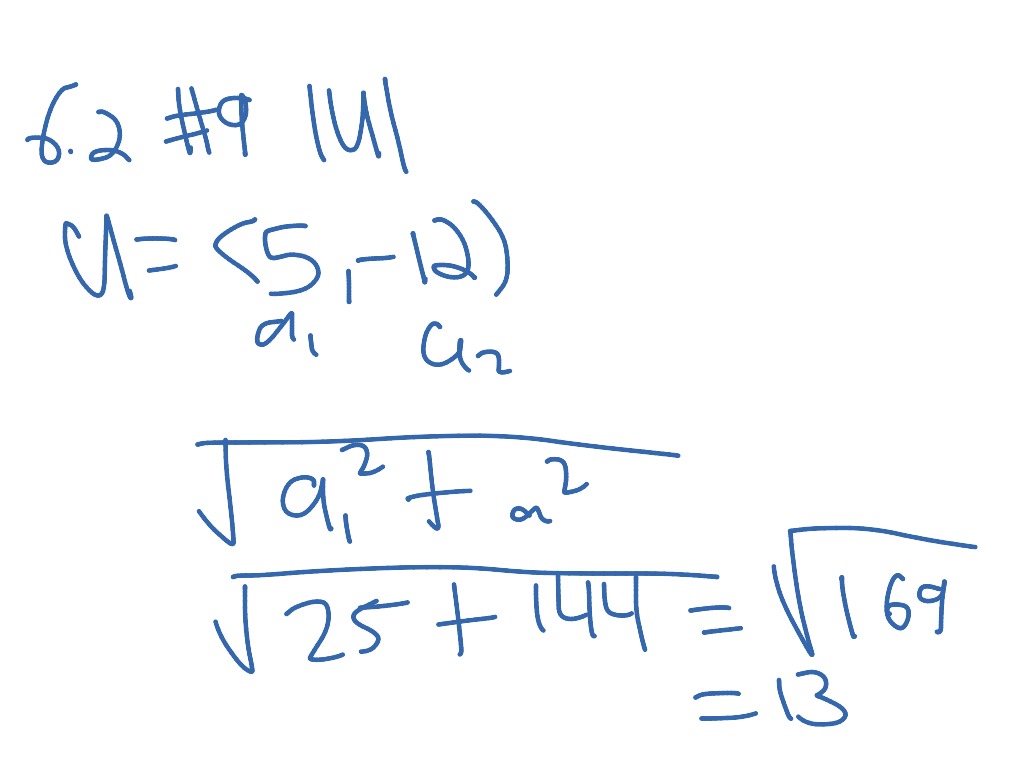 6.2 #9 |U|
U = <5, -12)
a₁ a₂
√a₁² + a²
√25 + 144 = √169
= 13